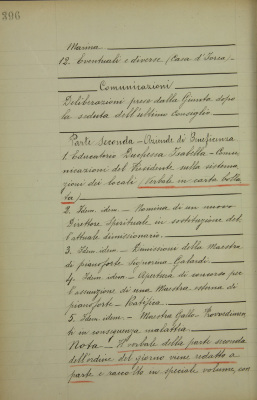 296
Marina
12. Eventuali e diverse (Casa d'Ivrea)
Comunicazioni
Deliberazioni prese dalla Giunta dopo
la seduta dell'ultimo Consiglio
Parte Seconda - Aziende di Beneficenza
1. Educatorio Duchessa Isabella - Comu-
nicazioni del Presidente sulla sistema-
zione dei locali (Verbale in carta bolla-
ta)
2. Idem idem - Nomina di un nuovo
Direttore Spirituale in sostituzione del-
l'attuale dimissionario
3. Idem idem - Dimissioni della Maestra
di pianoforte Signorina
4. Idem idem - Apertura di concorso per
l'assunzione di una Maestra esterna di
pianoforte - Ratifica
5. Idem idem - Maestra Gallo. Provvedimen-
to in conseguenza malattia.
Nota - Il verbale della parte seconda
dell'ordine del giorno viene redatto a
parte e raccolto in speciale volume, con